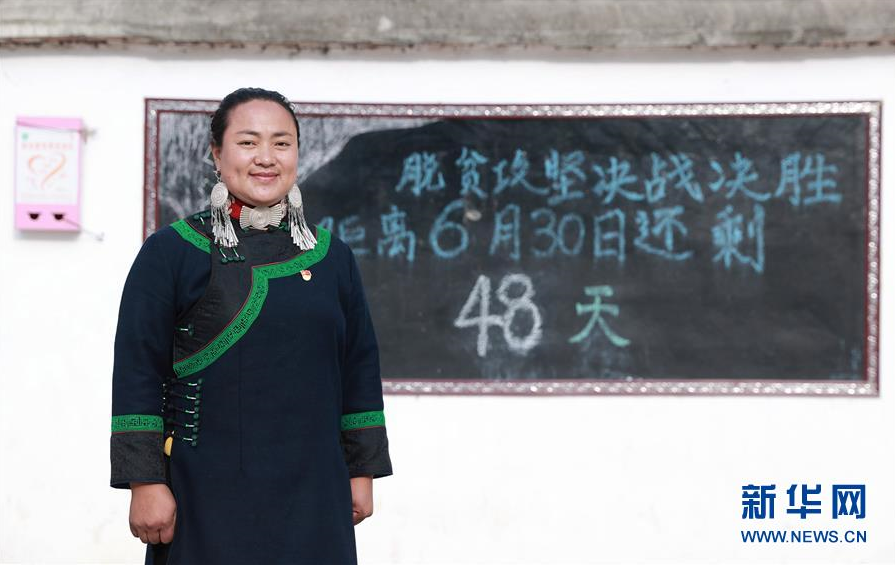 脱贫攻坚决战决胜
距离6月30日还剩
48天
新华网
WWW.NEWS.CN